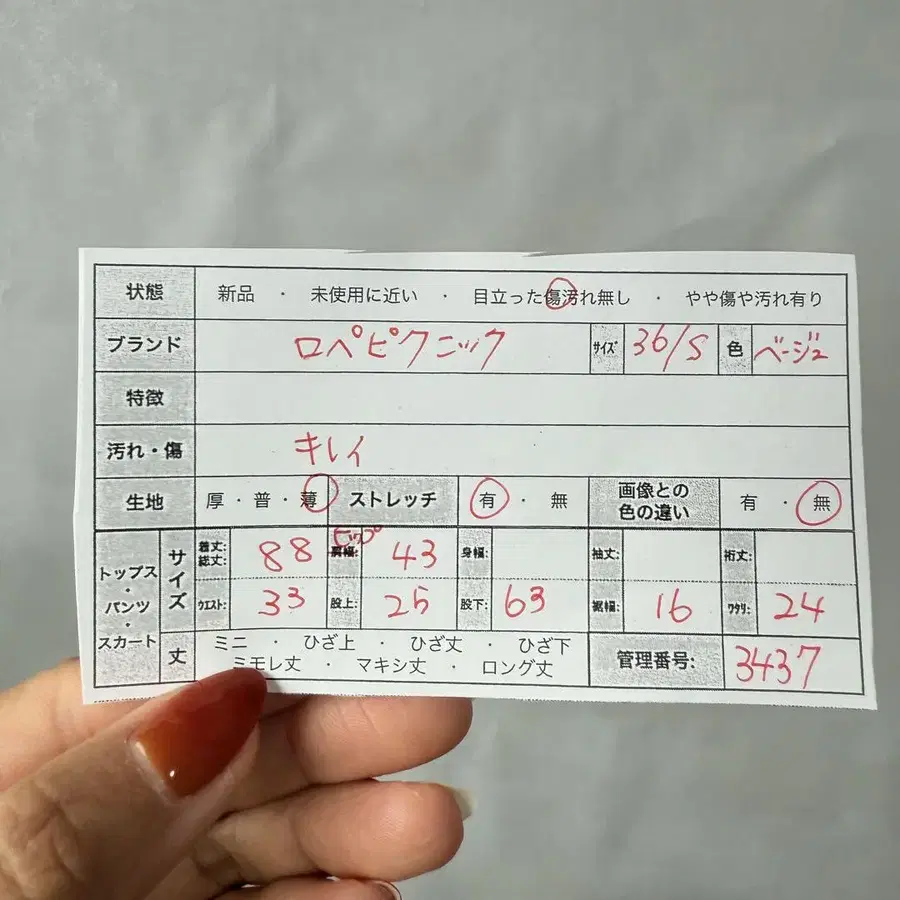 状態 新品 ・ 未使用に近い ・ 目立った傷汚れ無し ・ やや傷や汚れ有り
ブランド ロペピクニック サイズ 36/S 色 ベージュ
特徴
汚れ・傷 キレイ
生地 厚・普・薄 ストレッチ 有 ・ 無 画像との色の違い 有 ・ 無
トップス・パンツ・スカート サイズ 着丈:総丈: 88 ヒップ 肩幅: 43 身幅: 袖丈: 裄丈:
ウエスト: 33 股上: 25 股下: 63 裾幅: 16 ワタリ: 24
丈 ミニ ・ ひざ上 ・ ひざ丈 ・ ひざ下
ミモレ丈 ・ マキシ丈 ・ ロング丈 管理番号: 3437